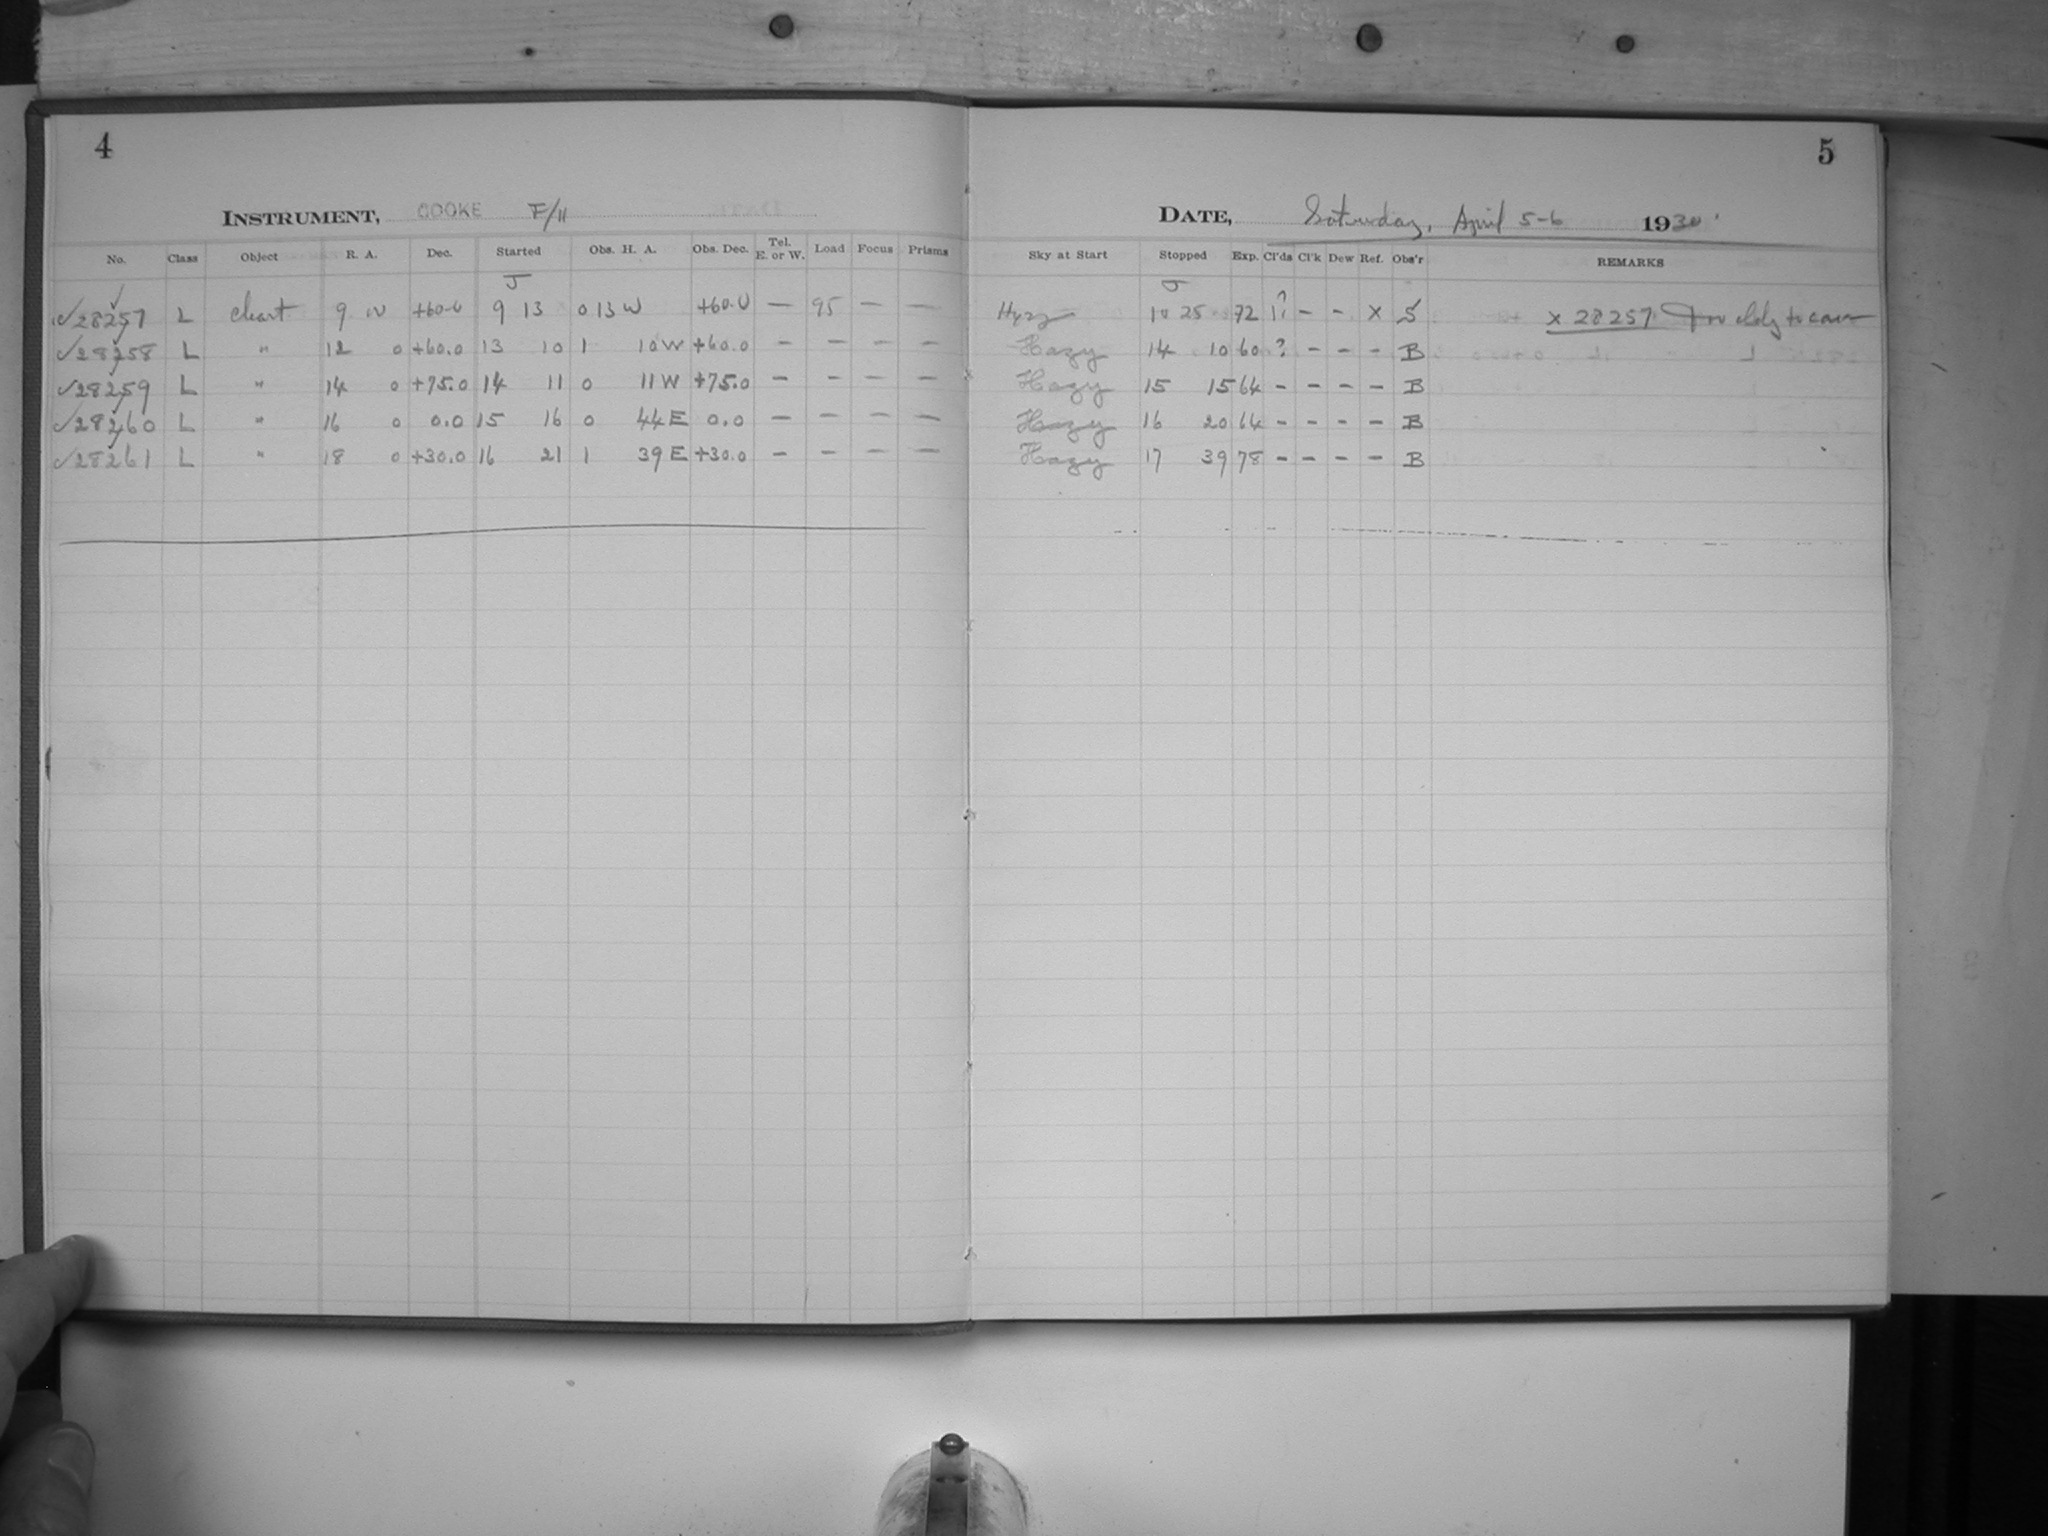 4
INSTRUMENT, COOKE F/11
No. Class Object R. A. Dec. Started Obs. H. A. Obs. Dec. Tel. E. or W. Load Focus Prisms
J
✓28257 L chart 9 0 +60.0 9 13 0 13 W +60.0 — 95 — —
✓28258 L " 12 0 +60.0 13 10 1 10 W +60.0 — — — —
✓28259 L " 14 0 +75.0 14 11 0 11 W +75.0 — — — —
✓28260 L " 16 0 0.0 15 16 0 44 E 0.0 — — — —
✓28261 L " 18 0 +30.0 16 21 1 39 E +30.0 — — — —
5
DATE, Saturday, April 5-6 1930
Sky at Start Stopped Exp. Cl'ds Cl'k Dew Ref. Obs'r REMARKS
J
10 25 72 - - X S X 28257 Too cldy to cover
Hazy 14 10 60 ? - - - B
Hazy 15 15 64 - - - - B
Hazy 16 20 64 - - - - B
Hazy 17 39 78 - - - - B